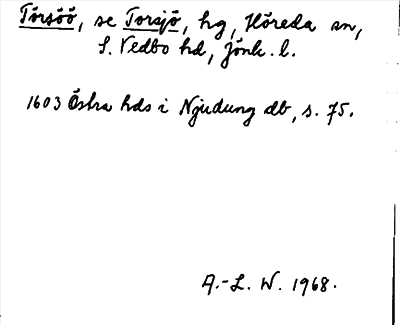 Torsöö, se Torsjö, hg, Höreda sn,
S. Vedbo hd, Jönk. l.
1603 Östra hds i Njudung db, s. 75.
A.-L. W. 1968.